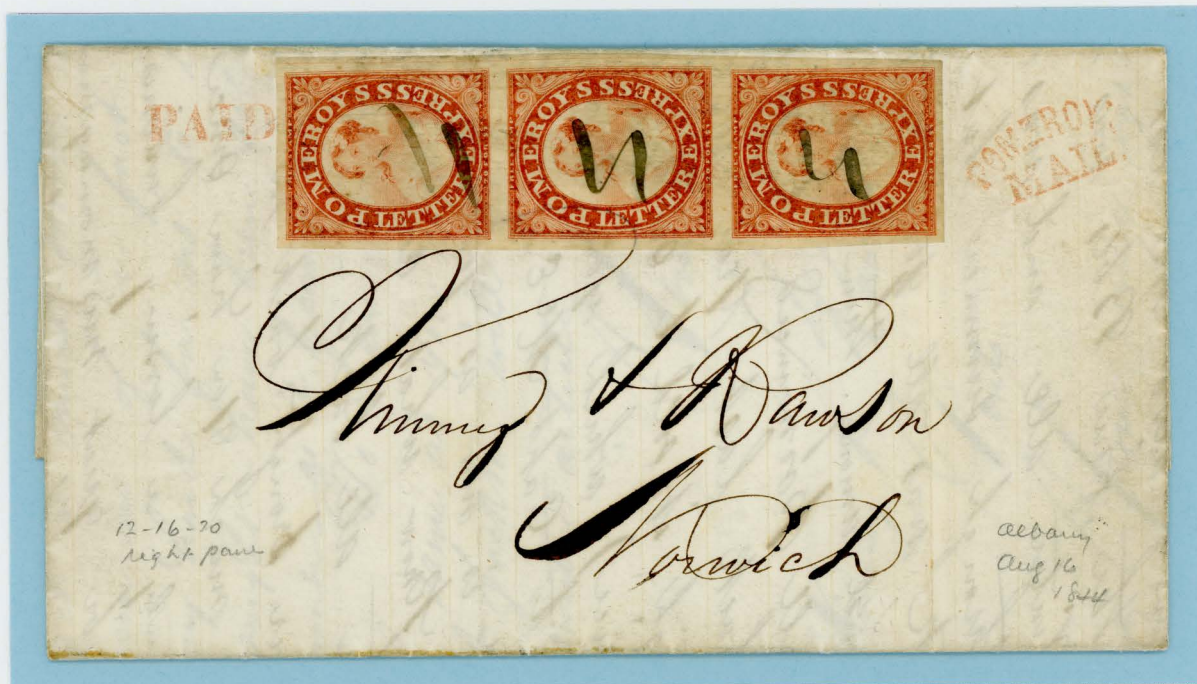 PAID
POMEROY'S LETTER EXPRESS
POMEROY'S LETTER EXPRESS
POMEROY'S LETTER EXPRESS
POMEROY'S
MAIL.
& Rawson
Norwich
12-16-20
right pane
Albany
Aug 16
1844